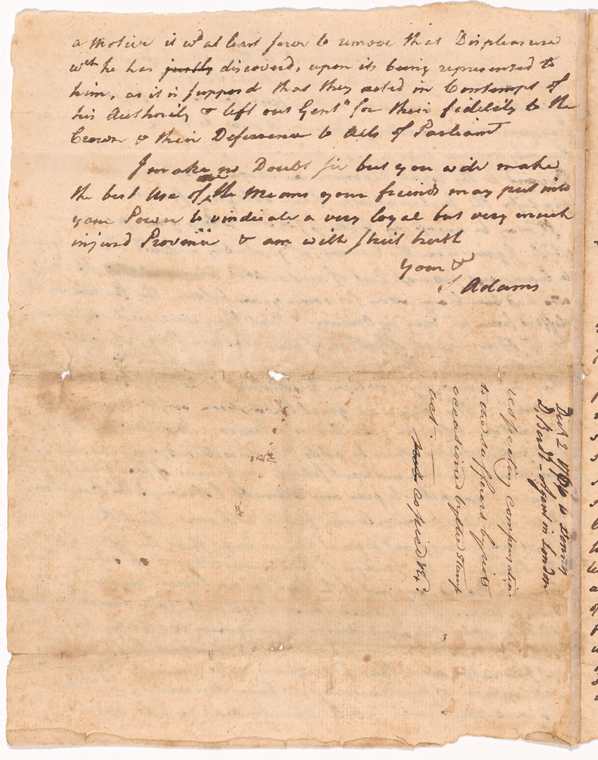 a motive it wd at least serve to remove that Displeasure
wch he has justly discovered, upon its being represented to
him, as it is suppos'd that they acted in Contempt of
his Authority & left out Gentn for their fidelity to the
Crown & their Defference to Acts of Parliamt
I make no Doubt Sir but you will make
the best Use of the Means your friends may put into
your Power to vindicate a very loyal but very much
injurd Province & am with strict truth
Your &c
S Adams
Decr 2 1766 to Dennis
D Berdt - Agent in London
respecting compensation
to the sufferers by riots
occasioned by the Stamp
act.
copied